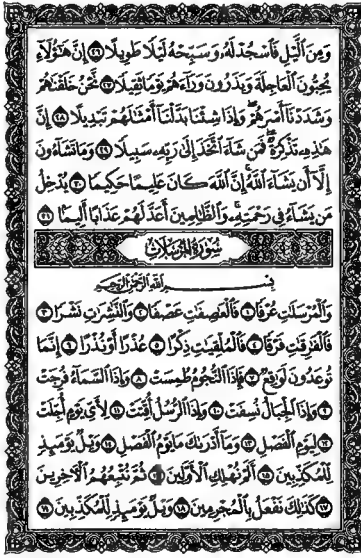 وَمِنَ ٱلَّيْلِ فَٱسْجُدْ لَهُۥ وَسَبِّحْهُ لَيْلًا طَوِيلًا ٢٦ إِنَّ هَٰٓؤُلَآءِ
يُحِبُّونَ ٱلْعَاجِلَةَ وَيَذَرُونَ وَرَآءَهُمْ يَوْمًا ثَقِيلًا ٢٧ نَّحْنُ خَلَقْنَٰهُمْ
وَشَدَدْنَآ أَسْرَهُمْ وَإِذَا شِئْنَا بَدَّلْنَآ أَمْثَٰلَهُمْ تَبْدِيلًا ٢٨ إِنَّ
هَٰذِهِۦ تَذْكِرَةٌ فَمَن شَآءَ ٱتَّخَذَ إِلَىٰ رَبِّهِۦ سَبِيلًا ٢٩ وَمَا تَشَآءُونَ
إِلَّآ أَن يَشَآءَ ٱللَّهُ إِنَّ ٱللَّهَ كَانَ عَلِيمًا حَكِيمًا ٣٠ يُدْخِلُ
مَن يَشَآءُ فِى رَحْمَتِهِۦ وَٱلظَّٰلِمِينَ أَعَدَّ لَهُمْ عَذَابًا أَلِيمًا ٣١
سُورَةُ المُرْسَلَاتِ
بِسْمِ ٱللَّهِ ٱلرَّحْمَٰنِ ٱلرَّحِيمِ
وَٱلْمُرْسَلَٰتِ عُرْفًا ١ فَٱلْعَٰصِفَٰتِ عَصْفًا ٢ وَٱلنَّٰشِرَٰتِ نَشْرًا ٣
فَٱلْفَٰرِقَٰتِ فَرْقًا ٤ فَٱلْمُلْقِيَٰتِ ذِكْرًا ٥ عُذْرًا أَوْ نُذْرًا ٦ إِنَّمَا
تُوعَدُونَ لَوَٰقِعٌ ٧ فَإِذَا ٱلنُّجُومُ طُمِسَتْ ٨ وَإِذَا ٱلسَّمَآءُ فُرِجَتْ
٩ وَإِذَا ٱلْجِبَالُ نُسِفَتْ ١٠ وَإِذَا ٱلرُّسُلُ أُقِّتَتْ ١١ لِأَىِّ يَوْمٍ أُجِّلَتْ
١٢ لِيَوْمِ ٱلْفَصْلِ ١٣ وَمَآ أَدْرَىٰكَ مَا يَوْمُ ٱلْفَصْلِ ١٤ وَيْلٌ يَوْمَئِذٍ
لِّلْمُكَذِّبِينَ ١٥ أَلَمْ نُهْلِكِ ٱلْأَوَّلِينَ ١٦ ثُمَّ نُتْبِعُهُمُ ٱلْءَاخِرِينَ
١٧ كَذَٰلِكَ نَفْعَلُ بِٱلْمُجْرِمِينَ ١٨ وَيْلٌ يَوْمَئِذٍ لِّلْمُكَذِّبِينَ ١٩